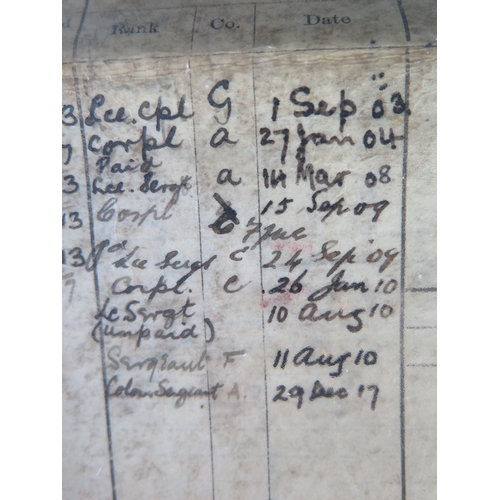 Rank Co. Date
3 Lce. Cpl G 1 Sep 03.
Corpl a 27 Jan 04
Paid
3 Lce. Sergt a 14 Mar 08
Corpl 15 Sep 09
13
13 Pd Lce Sergt C 24 Sep 09
9 Corpl. C 26 Jan 10
Lc Sergt 10 Aug 10
(unpaid)
Sergeant F 11 Aug 10
Colour Sergeant A. 29 Dec 17